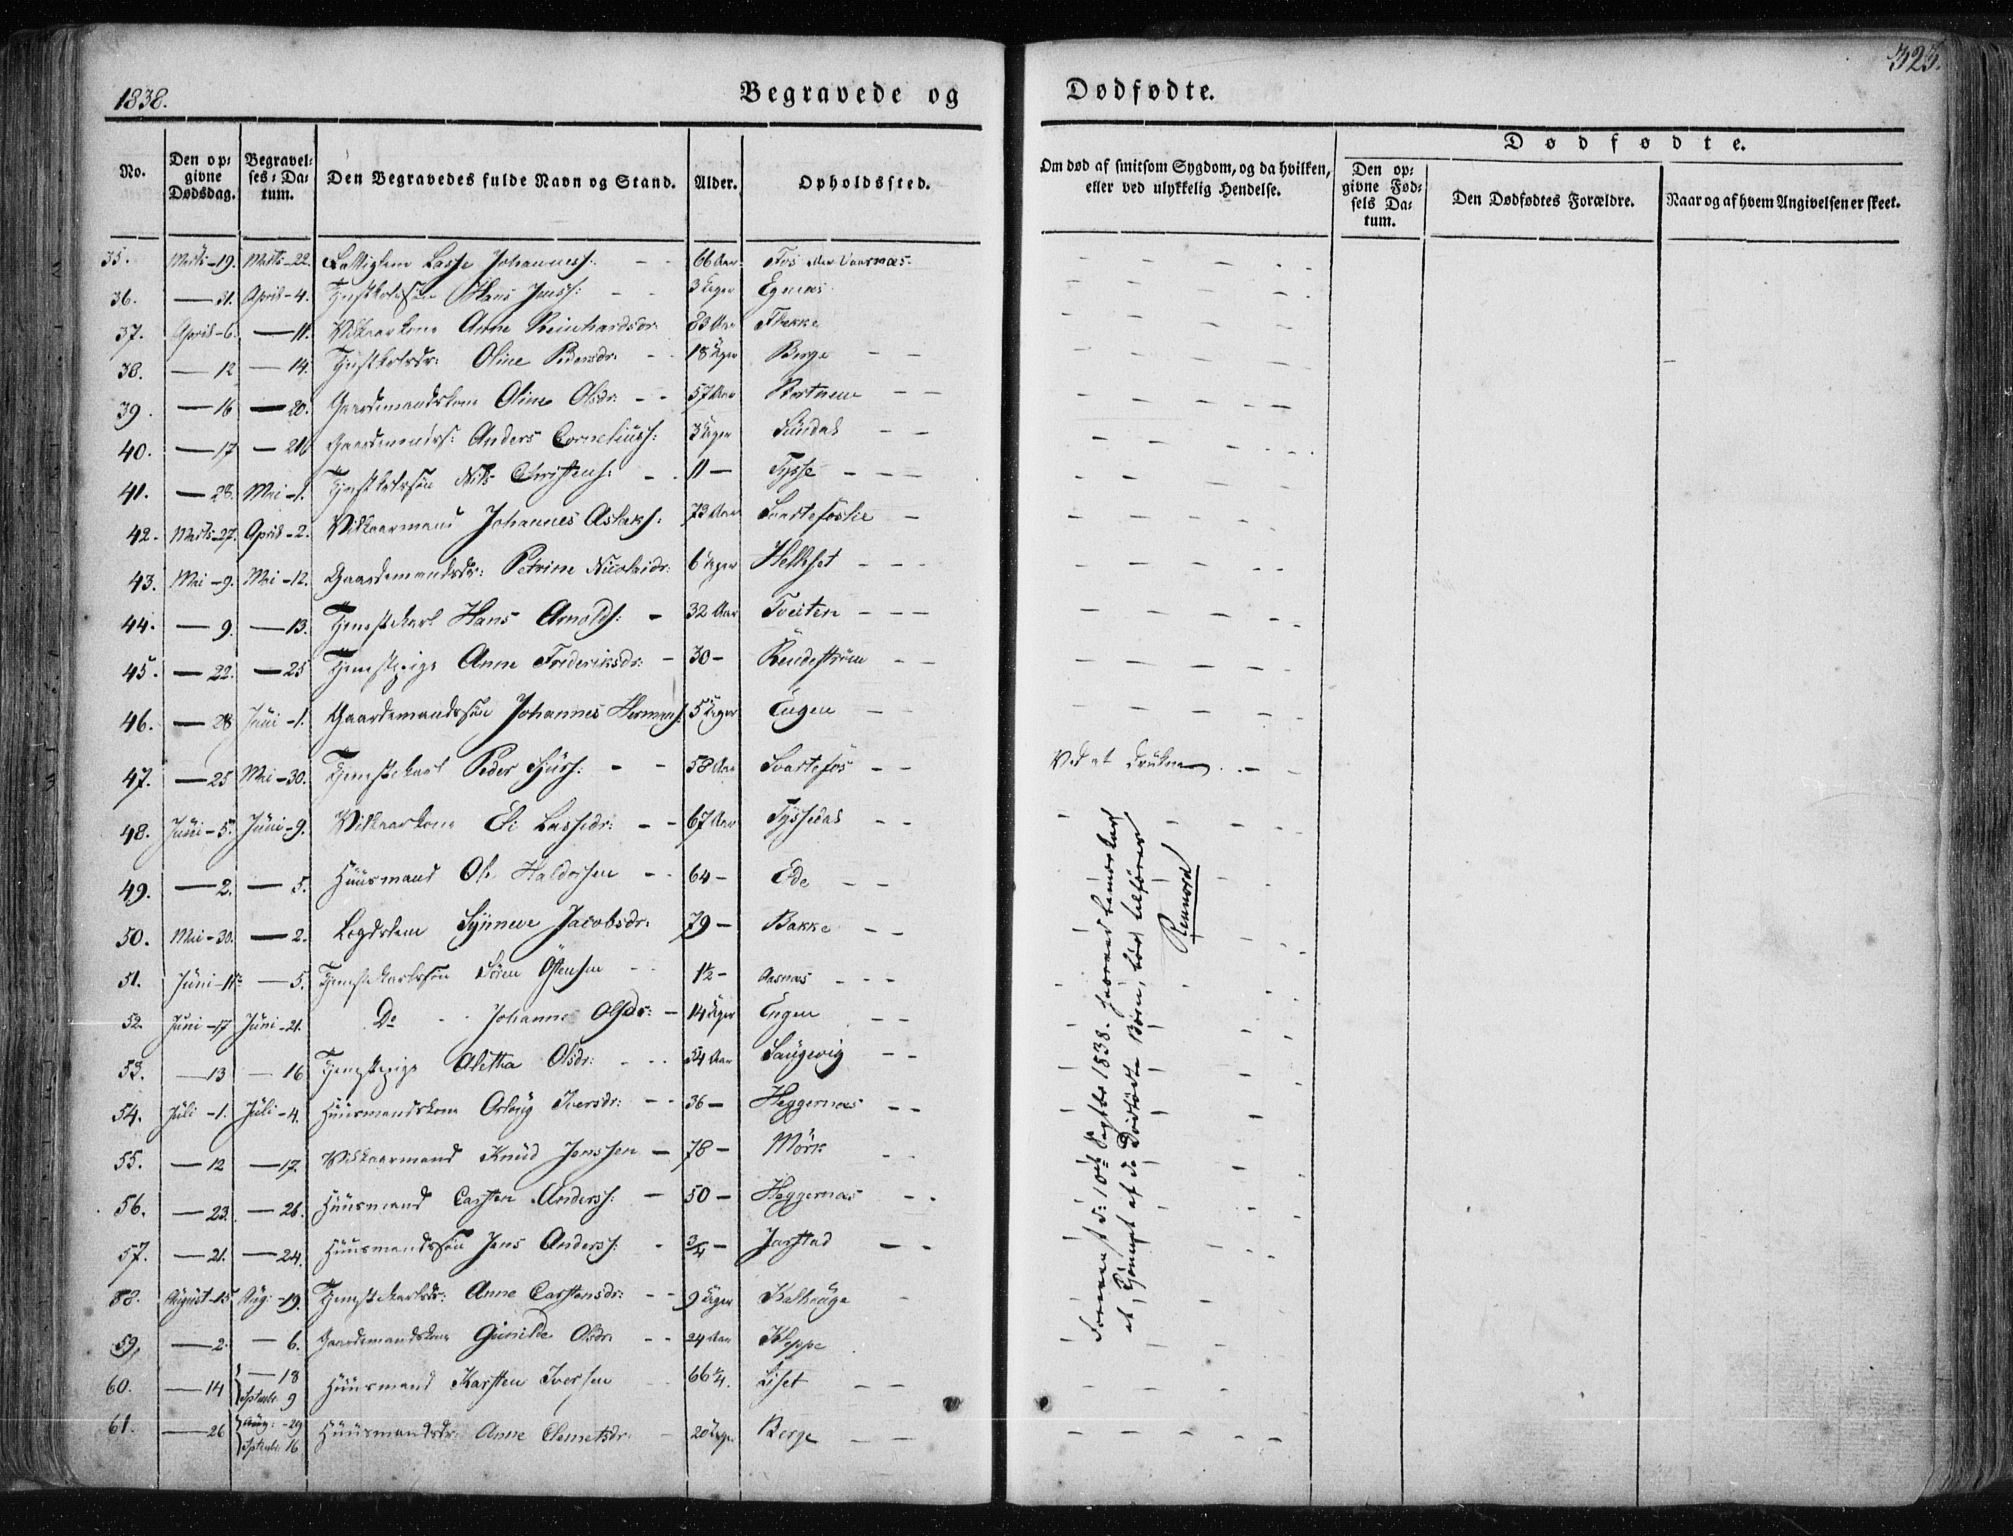 1838.
Begravede og Dødfødte.
323.
No.
Den opgivne Dødsdag.
Begravelses-Datum.
Den Begravedes fulde Navn og Stand.
Alder.
Opholdssted.
Om død af smitsom Sygdom, og da hvilken, eller ved ulykkelig Hendelse.
Dødfødte.
Den opgivne Fødsels Datum.
Den Dødfødtes Forældre.
Naar og af hvem Angivelsen er skeet.
35. Marts - 19. Marts - 22. Lasse Johanness: - - 66 Aar Fos
36. — 31. April - 4. Hans Jenss: - - 3 Uger Egenæs
37. April - 6. — 11. Vilkaarkone Anne Reinhardsdr: 83 Aar Flekke
38. — 12 — 14. Oline Pedersdr: - - 18 Uger Berge - -
39. — 16 — 20. Gaardemandskone Oline Olsdr: - - 57 Aar - -
40. — 17 — 21 Gaardemands: Anders Corneliuss: 3 Uger Sundal - -
41. — 28. Mai - 1. Nils Christens: - - 11 — Tysse - - -
42. Marts - 27. April - 2. Vilkaarmand Johannes Aslaks: 73 Aar -
43. Mai - 9. Mai - 12. Gaardemandsdr: Petrine Nicolaidr: 6 Uger Helleset - - -
44. — 9. — 13. Tjenestekarl Hans Arnolds: - 32 Aar Tveiten - - -
45. — 22. — 25 Tjenestepige Anne Frederiksdr: - 30 - - -
46. — 28 Juni - 1. Gaardemandssøn Johannes Hermans: 5 Uger Engen - -
47. — 25 Mai - 30. Tjenestekarl Peder - - 58 Aar Svartefos - - Ved at drukne
48. Juni - 5. Juni - 9. Vilkaarkone Eli Lassedr: - - 67 Aar Tyssedal - -
49. — 2. — 5. Huusmand Ole Haldorsen - - 64 - Ede - -
50. Mai - 30. — 2. Lægdslem Synneve Jacobsdr: 79 - Bakke - -
51. Juni - 11 — 5. Tjenestekarlssøn Søren Østensen - - 1½ - Aasnæs - - -
52. Juni - 17 Juni - 21. Do - - Johanne Olsdr: - 14 Uger Engen - -
53. — 13 — 16 Tjenestepige Aletha Olsdr: - - 54 Aar Saugevig - -
54. Juli - 1. Juli - 4. Huusmandskone Iversdr: - - 36 - Heggernæs - -
55. — 12 — 17. Vilkaarmand Knud Jenssen - 78 - Mørk -
56. — 23. — 26. Huusmand Carsten Anderss: - 50 - Heggernæs - -
57. — 21. — 24. Huusmandssøn Jens Anderss: - ¾ - Jarstad - -
58. August - 15 Aug: - 19. Tjenestekarlsdr: Anne Carstensdr: - - 9 Uger -
59. — 2. — 6. Gaardemandskone Gunilde Olsdr: - - 24 Aar Kleppe
60. — 14 — 18 Septembr. 9 Huusmand Karsten Iversen - - 66¼. Liset - -
61. — 26 Aug: - 29 Septembr. 16 Huusmandsdr: Anne Clemetsdr: - 20 Uger Berge - -
Foreviist d: 10de Septbr 1838. hvorved bemærkes
at Kjønnet af de Dødfødte Børn, bør tilføres